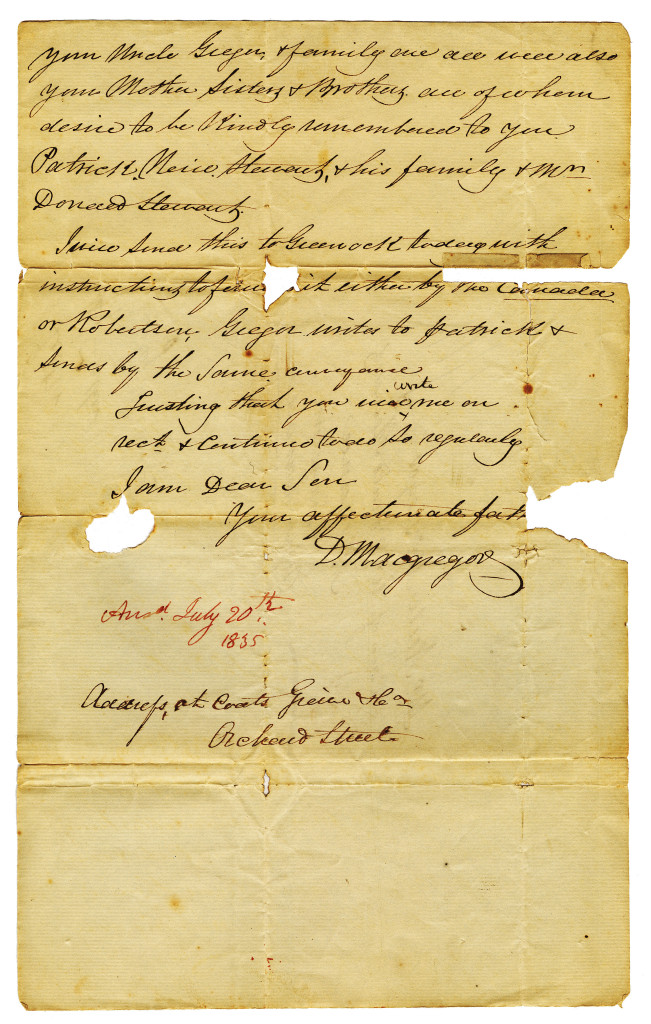 your Uncle Gregor, & family are all well also
your Mother Sisters & Brothers all of whom
desire to be Kindly remembered to you
Patrick, Neice Stewart, & his family & Mrs
Donald Stewart.
I will send this to Greenock today with
instructions to it either by the Canada
or Robertson, Gregor writes to Patrick &
sends by the same conveyance
Trusting that you will write me on
rect. & continue to do so regularly
I am Dear Son
Your affectionate fath
D. Macgregor
Ansd. July 20th
1835
Address, at Coats & Co
Orchard Street